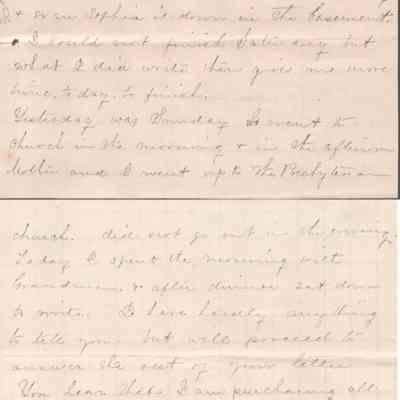 & so on Sophia is down in the basement.
I could not finish Saturday but
what I did write then give me more
time to day to finish.
Yesterday was Sunday I went to
church in the morning & in the afternoon
Mother and I went up to the Presbyterian
church. did not go out in the evening.
Today I spent the morning with
Grandma & after dinner sat down
to write. I have hardly anything
to tell you but will proceed to
answer the rest of your letter
You hear that I am purchasing all